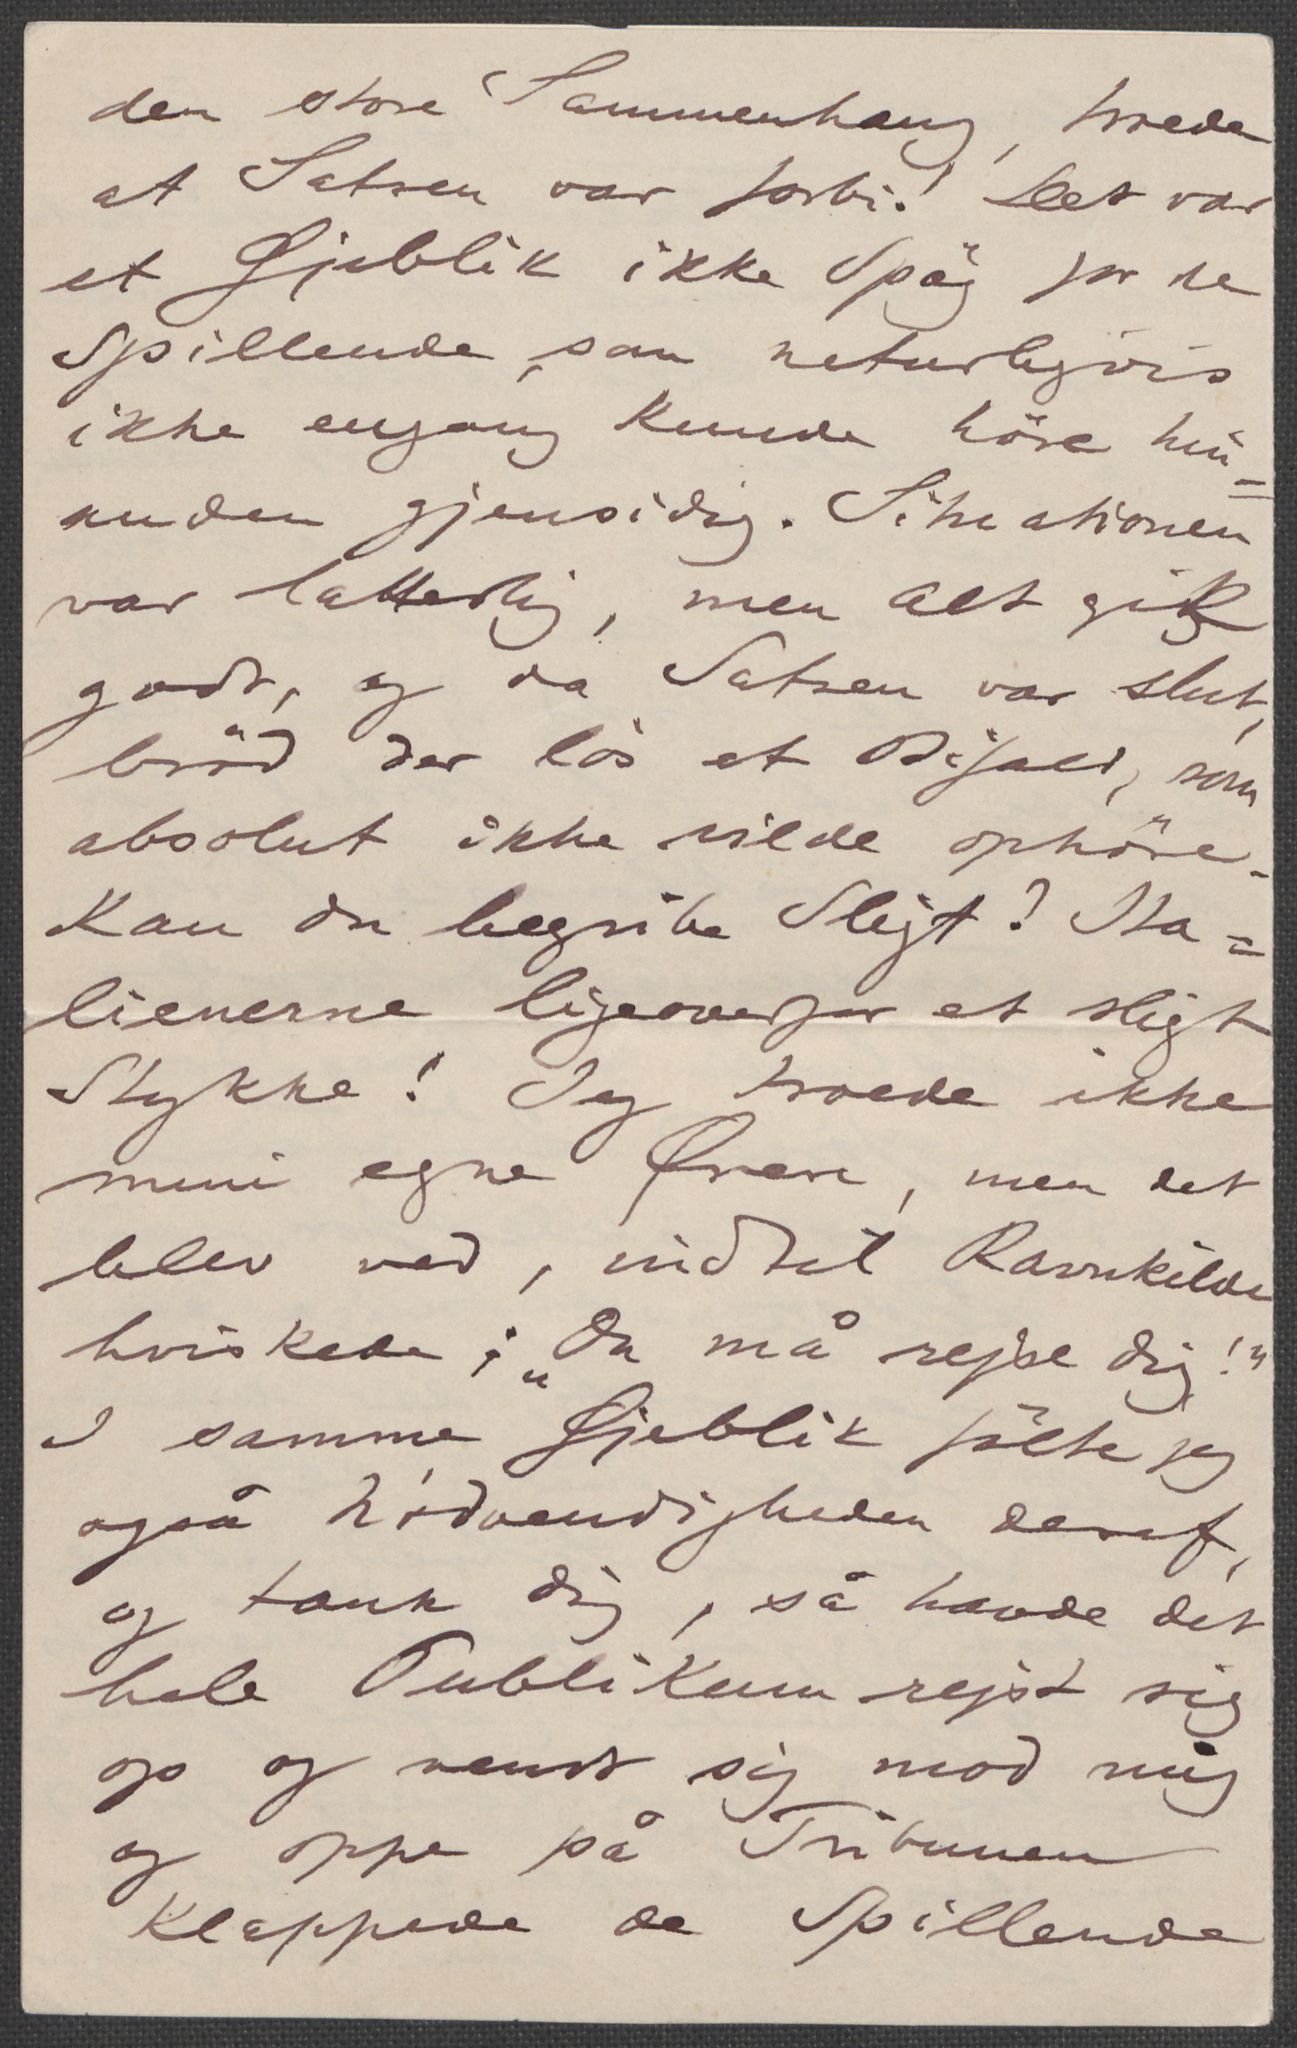 den store Sammenhang, troede
at Satsen var forbi! Det var
et Øjeblik ikke Spög for de
Spillende, som naturligvis
ikke engang kunde höre hin-
anden gjensidig. Situationen
var latterlig, men Alt gik
godt, og da Satsen var slut,
bröd der lös et Bifald, som
absolut ikke vilde ophöre.
Kan du begribe Sligt? Ita-
lienerne ligeoverfor et sligt
Stykke! Jeg troede ikke
mine egne Øren, men det
blev ved, indtil Ravnkilde
hviskede; „Du må rejse dig!"
I samme Øjeblik fölte jeg
også Nödvendigheden deraf,
og tænk dig, så havde det
hele Publikum rejst sig
op og vendt sig mod mig
og oppe på Tribunen
klappede de Spillende